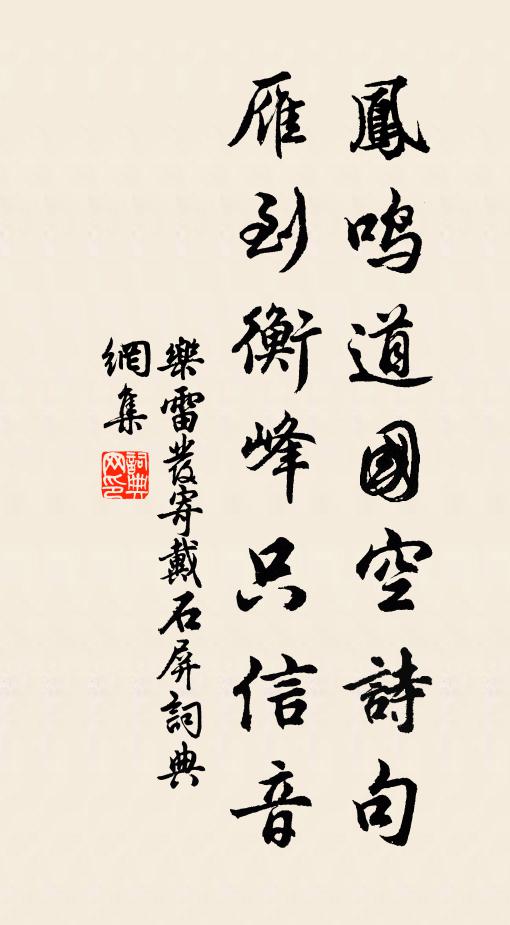 鳳鳴道國空詩句
雁到衡峰只信音
樂雷發寄戴石屏詞典
網集
詞典
网印